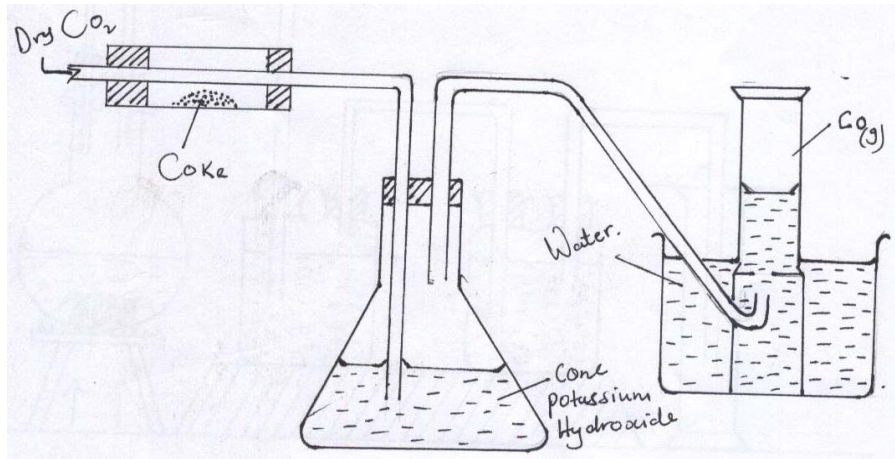 Dry CO2
Coke
CO(g)
Water.
Conc
potassium
Hydroxide